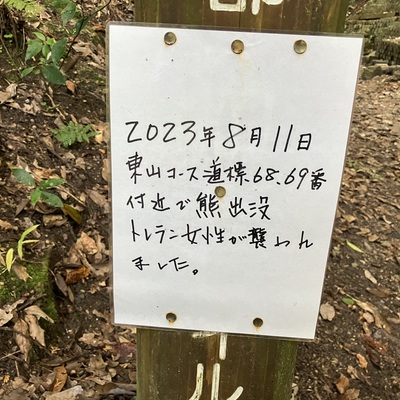 2023年8月11日
東山コース道標68.69番
付近で熊出没
トレラン女性が襲われ
ました。